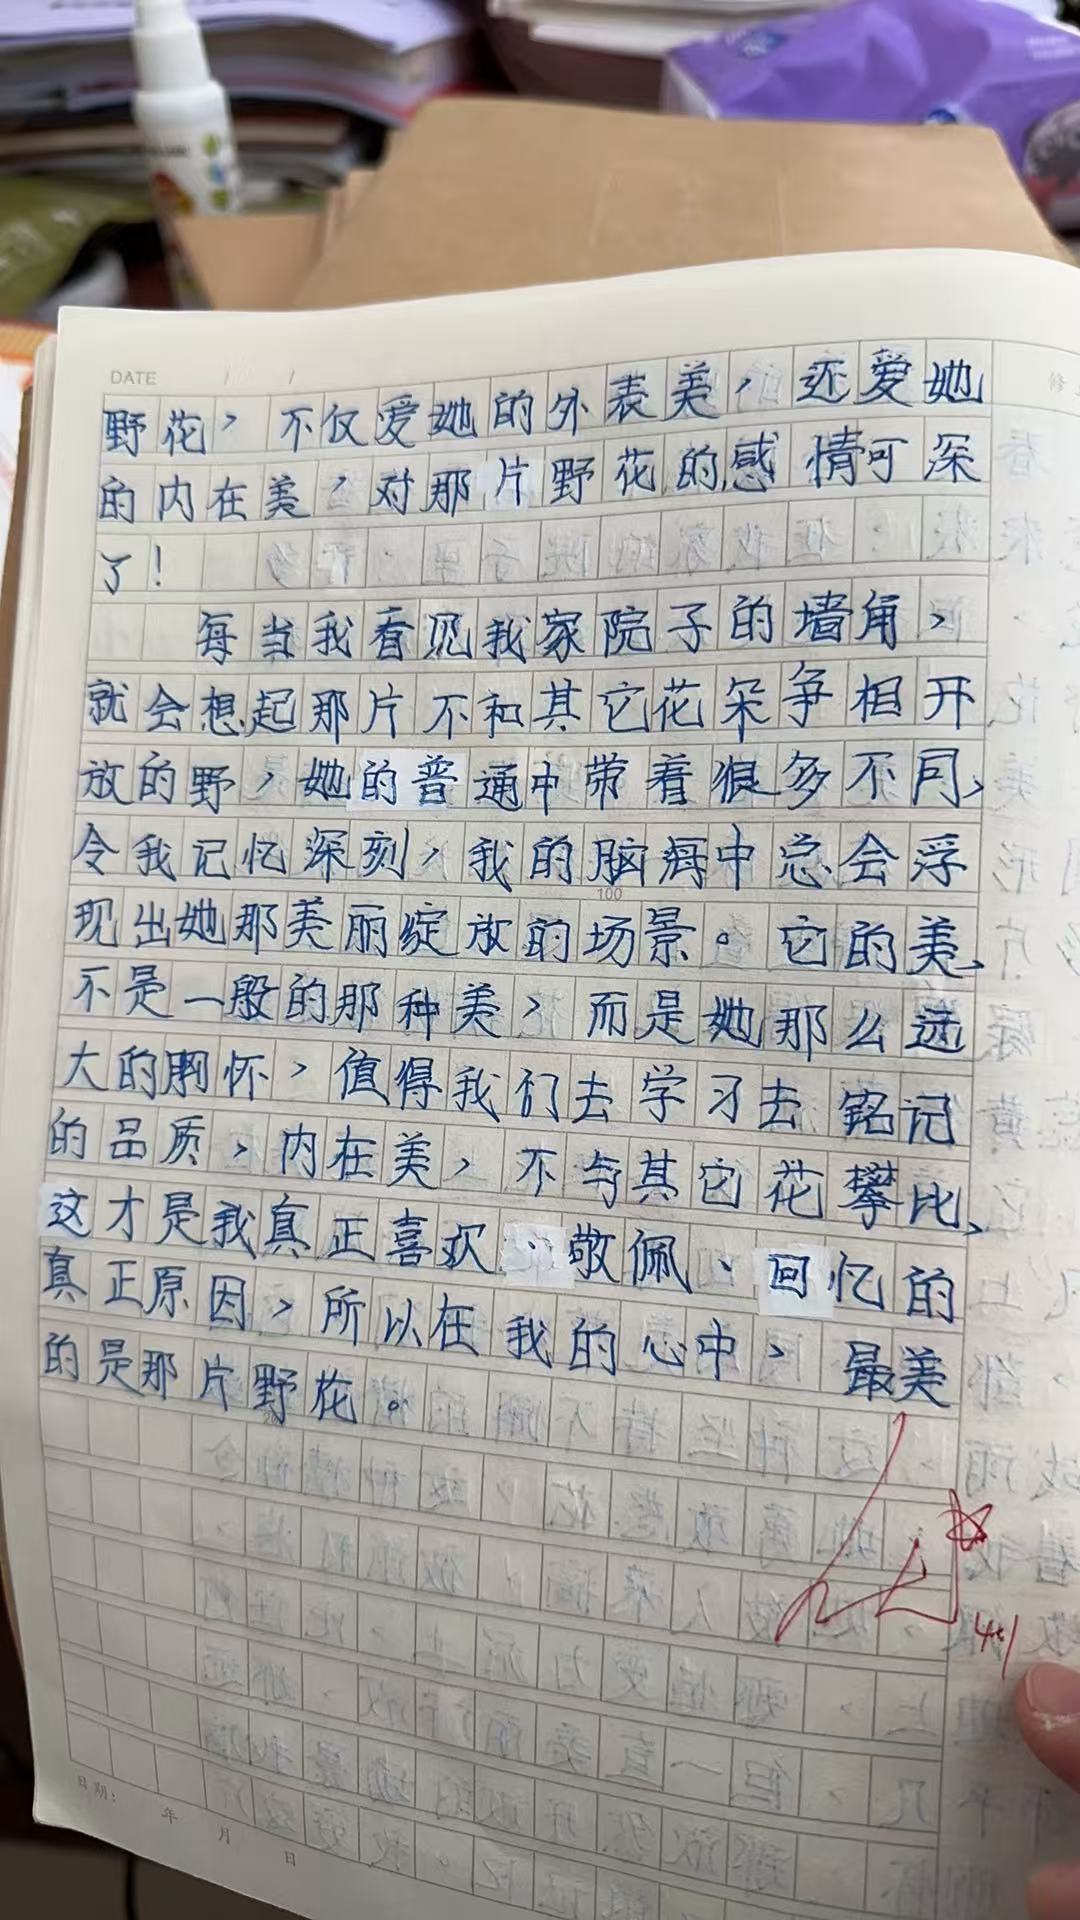 DATE / /
野花，不仅爱她的外表美，还爱她
的内在美，对那片野花的感情可深
了！
每当我看见我家院子的墙角，
就会想起那片不和其它花朵争相开
放的野，她的普通中带着很多不同，
令我记忆深刻，我的脑海中总会浮
100
现出她那美丽绽放的场景。它的美，
不是一般的那种美，而是她那么远
大的胸怀，值得我们去学习去铭记
的品质，内在美，不与其它花攀比，
这才是我真正喜欢、敬佩、回忆的
真正原因，所以在我的心中，最美
的是那片野花。
4.1
日期： 年 月 日